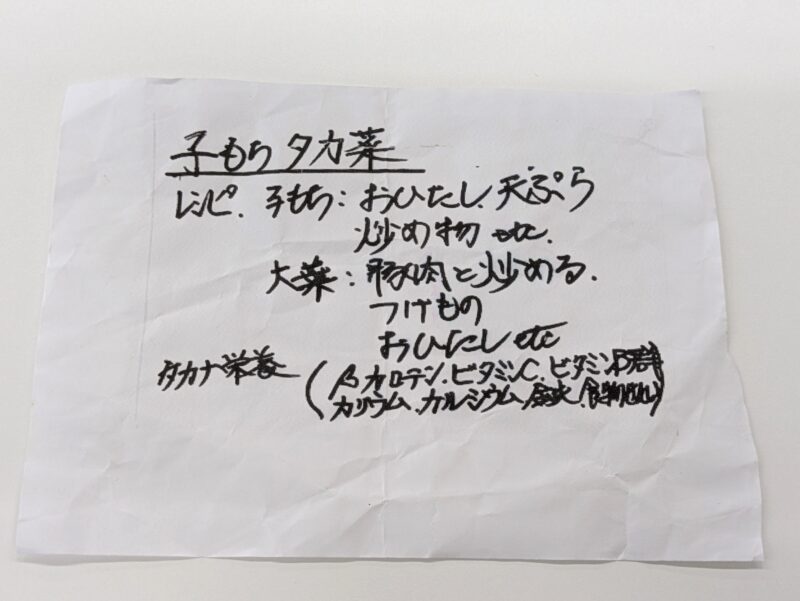 子もちタカ菜
レシピ、子もち：おひたし、天ぷら
炒め物 etc.
大葉：豚肉と炒める、
つけもの
おひたし etc
タカナ栄養
(βカロテン、ビタミンC、ビタミンB群
カリウム、カルシウム、鉄、食物せんい)